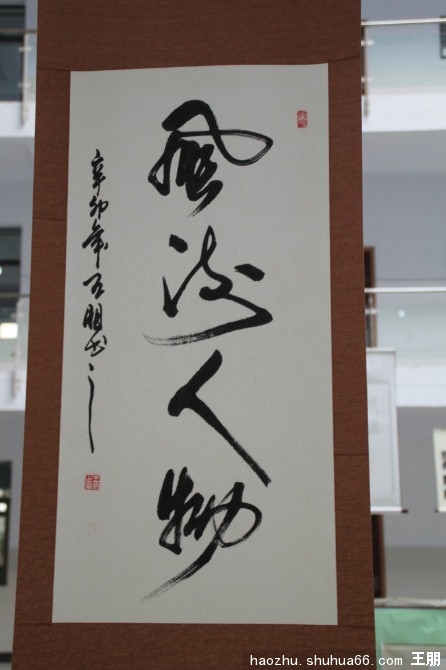 風流人物
辛卯年王朋书之
haozhu.shuhua66.com 王朋